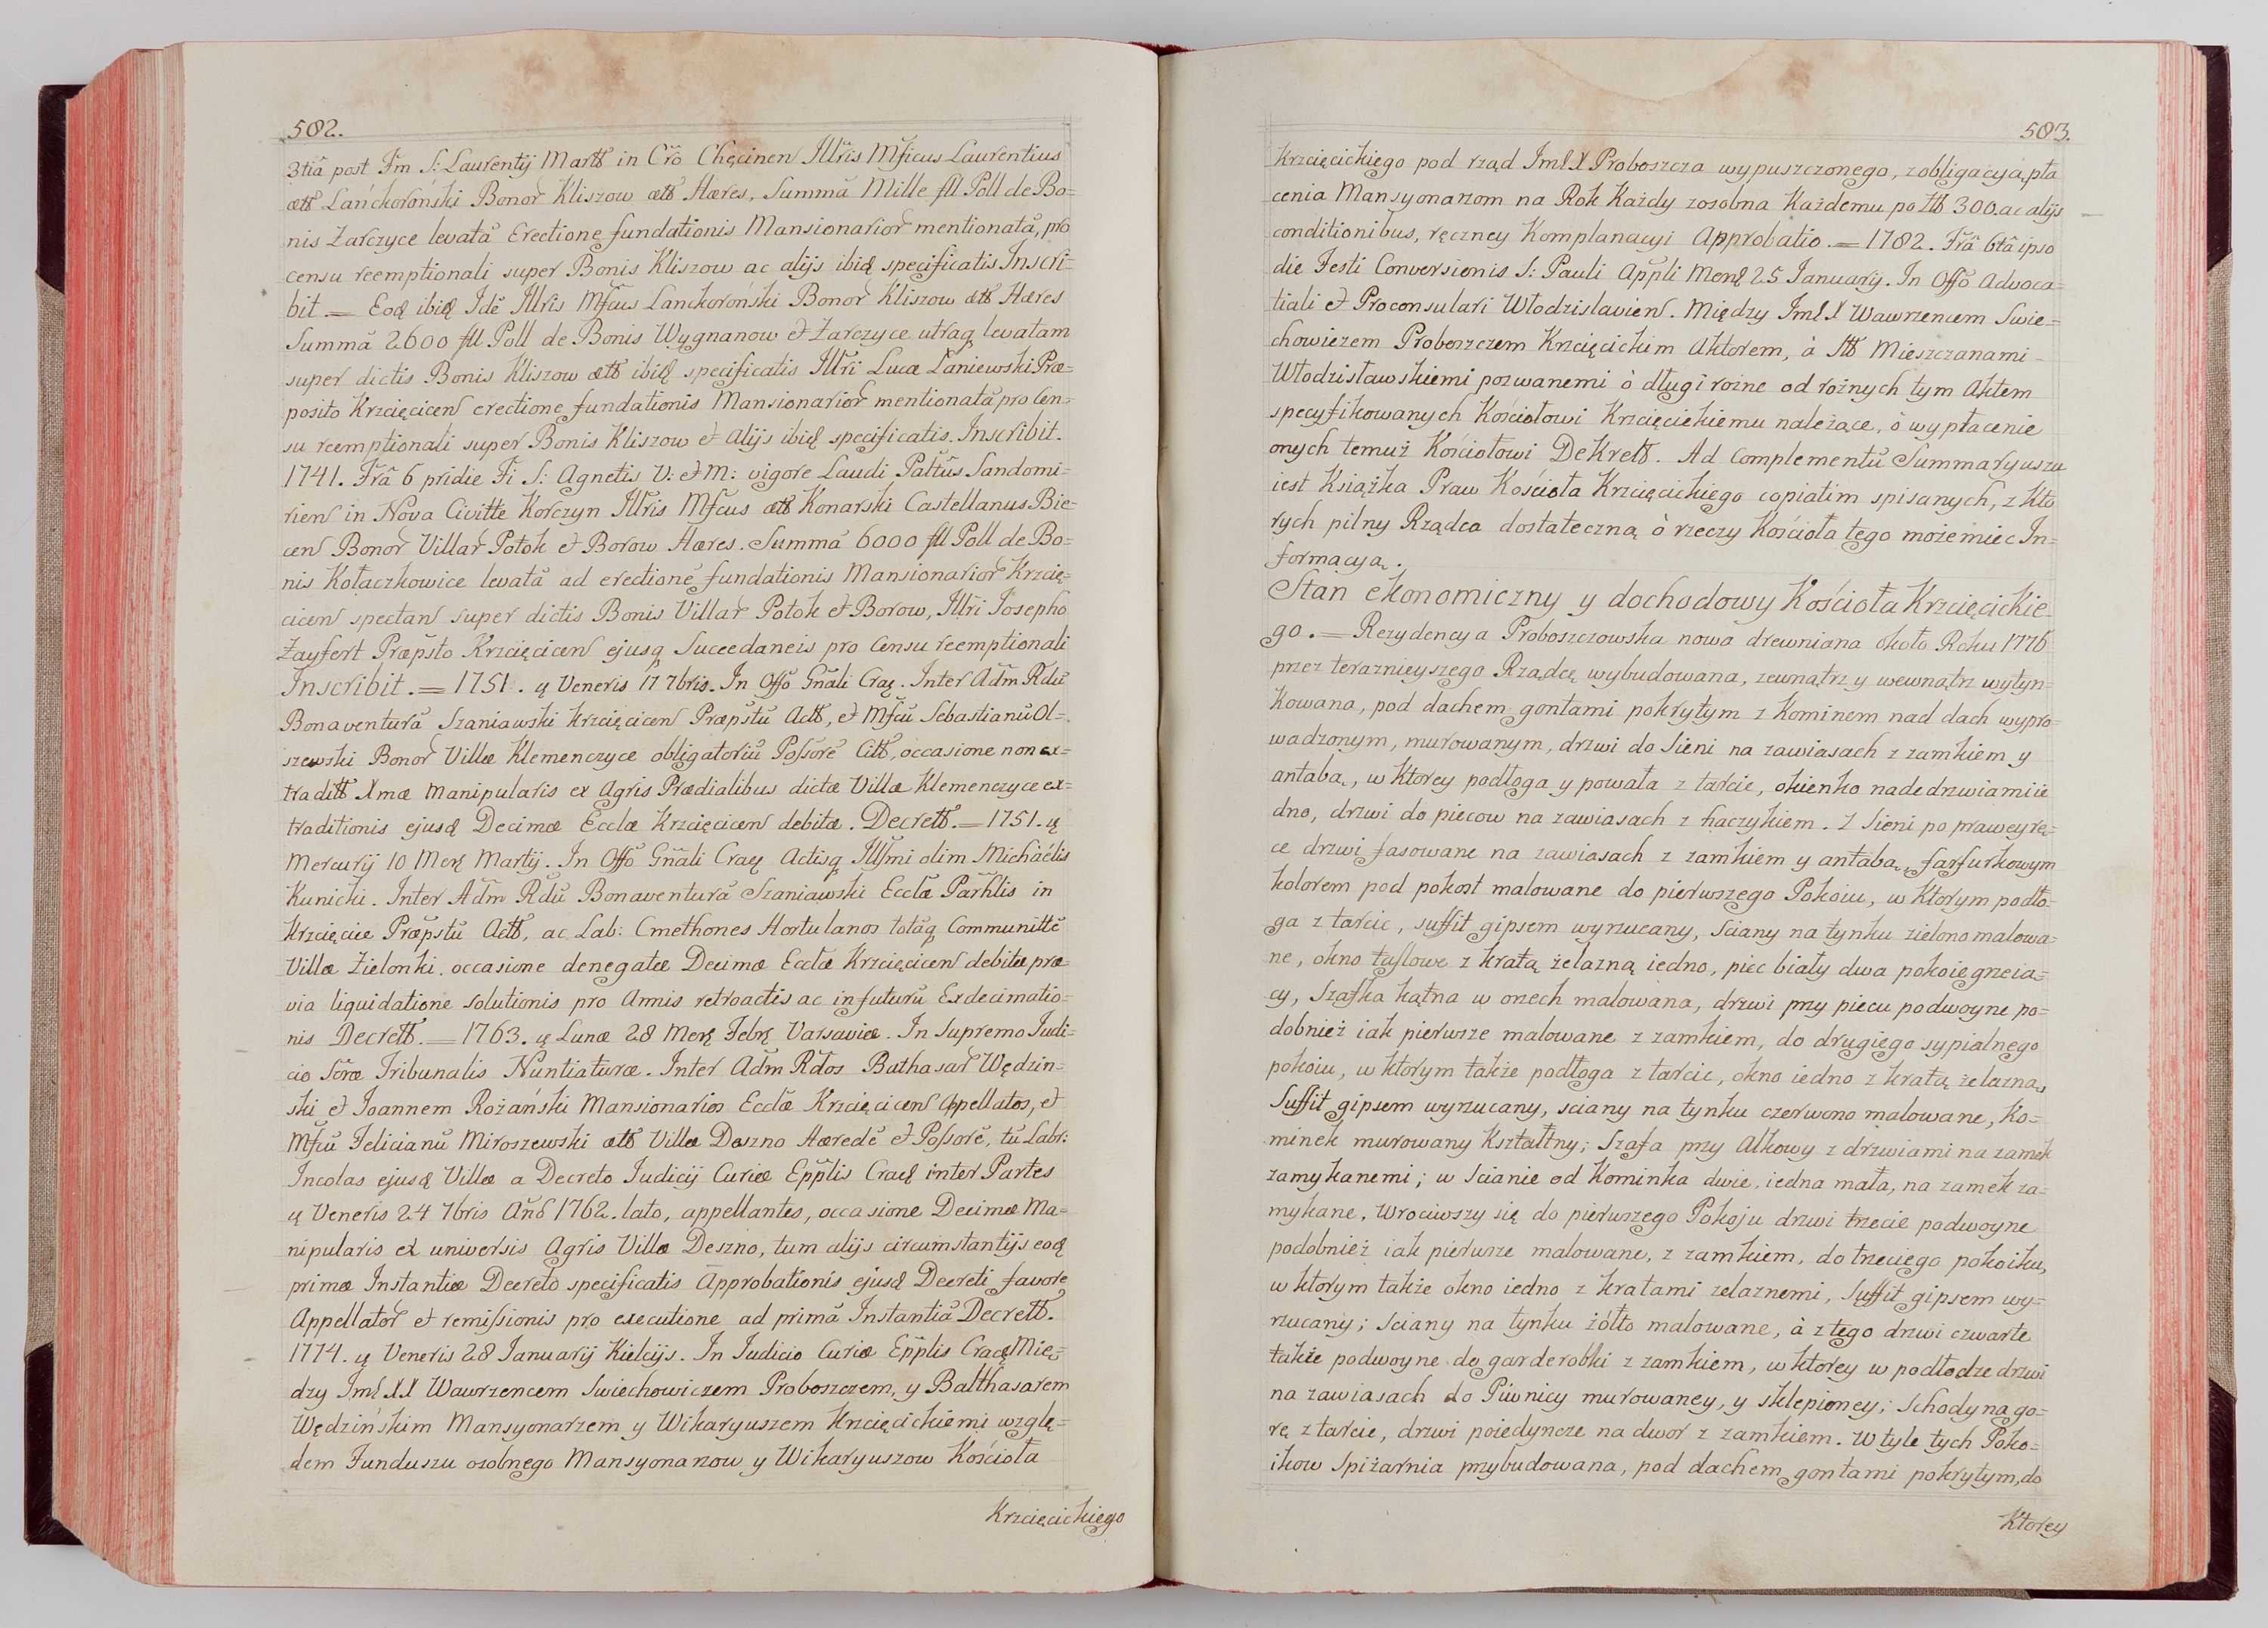 582.
3tiâ post Fm S: Laurentij Martt in Cřo Chęcinen Illris Mficus Laurentius
ætt Lánckoroński Bonoř Kliszow ætt Hæres, Summā Mille fll Poll de Bo=
nis Zarczyce levatā Erectione fundationis Mansionarioř mentionatā, pro
censu reemptionali super Bonis Kliszow ac alijs ibid specificatis Inscri=
bit. = Eod ibid Idē Illris Mfcus Lanckoroński Bonoř Kliszow ætt Hæres
Summā 2600 fll Poll de Bonis Wygnanow et Zarczyce utraq levatam
super dictis Bonis Kliszow ætt ibid specificatis Illri Lucæ Łaniewski Præ=
posito Krzcięcicen erectione fundationis Mansionarioř mentionatā pro Cen=
su reemptionali super Bonis Kliszow et alijs ibid specificatis. Inscribit.
1741. Frâ 6 pridie Fi S: Agnetis V: et M: vigore Laudi Palťus Sandomi=
rien in Nova Civitte Korczyn Illris Mfcus ætt Konarski Castellanus Bie=
cen Bonoř Villař Potok et Borow Hæres. Summā 6000 fll Poll de Bo=
nis Kołaczkowice levatā ad erectionē fundationis Mansionarioř Krzcię=
cicen spectan super dictis Bonis Villař Potok et Borow, Illri Josepho
Zayfert Præpsto Krzcięcicen ejusq Succedaneis pro Censu reemptionali
Inscribit. = 1751. ą Veneris 17 7bris. In Offo Gnāli Craç. Inter Adm Rdū
Bonaventurā Szaniawski Krzcięcicen Præpstū Actt, et Mfcū Sebastianū Ol=
szewski Bonoř Villæ Klemenczyce obligatoriū Possorē Citt, occasione non ex=
traditt Xmæ Manipularis ex Agris Prædialibus dictæ Villæ Klemenczyce ex=
traditionis ejusd Decimæ Ecclæ Krzcięcicen debitæ. Decrett. = 1751. ą
Mercurij 10 Men Martij. In Offo Gnāli Crac Actisq Illmi olim Michäelis
Kunicki. Inter Adm Rdū Bonaventurā Szaniawski Ecclæ Parhlis in
Krzcięcice Præpstū Actt, ac Lab: Cmethones Hortulanos totāq Communittē
Villæ Zielonki. occasione denegatæ Decimæ Ecclæ Krzcięcicen debitæ præ=
via liquidatione solutionis pro Annis retroactis ac in futurū Exdecimatio=
nis Decrett. = 1763. ą Lunæ 28 Men Febr Varsaviæ. In Supremo Judi=
cio Soræ Tribunalis Nuntiaturæ. Inter Adm Rdos Bathasař Wędzin=
ski et Joannem Rożański Mansionarios Ecclæ Krzcięcicen Appellatos, et
Mfcū Felicianū Miroszewski ætt Villæ Deszno Hæredē et Possorē, tū Labr:
Incolas ejusd Villæ a Decreto Judicij Curiæ Epplis Crac inter Partes
ą Veneris 24 7bris Anō 1762. lato, appellantes, occasione Decimæ Ma=
nipularis ex universis Agris Villæ Deszno, tum alijs circumstantijs eod
primæ Instantiæ Decreto specificatis Approbationis ejusd Decreti favore
Appellatoř et remissionis pro executione ad primā Instantiā Decrett.
1774. ą Veneris 28 Januarij Kielcijs. In Judicio Curiæ Epplis Crac Mię=
dzy Jml XX Wawrzencem Swiechowiczem Proboszczem, y Balthasarem
Wędzińskim Mansyonarzem y Wikaryuszem Krzcięcickiemi wzglę=
dem Funduszu osobnego Mansyonarzow y Wikaryuszow Kościoła
Krzcięcickiego
583.
Krzcięcickiego pod rząd Jml X Proboszcza wypuszczonego, z obligacyą pła
cenia Mansyonarzom na Rok Każdy zosobna Każdemu po Złtt 300. ac alijs
conditionibus, ręczney Komplanacyi Approbatio. = 1782. Frâ 6tâ ipso
die Festi Conversionis S: Pauli Appli Men 25 Januarij. In Offo Advoca=
tiali et Proconsulari Włodzislavien. Między Jml X Wawrzencem Swie=
chowiczem Proboszczem Krzcięcickim Aktorem, à Stt Mieszczanami
Włodzisławskiemi pozwanemi ò długi rożne od rożnych tym Aktem
specyfikowanych Kościołowi Krzcięcickiemu należące, ò wypłacenie
onych temuż Kościołowi DeKrett. Ad Complementū Summaryuszu
iest Książka Praw Kościoła Krzcięcickiego copiatim spisanych, z kto
rych pilny Rządca dostateczną ò rzeczy Kościoła tego może miec In=
formacyą.
Stan ekonomiczny y dochodowy Kościoła Krzcięcickie=
go. = Rezydencya Proboszczowska nowa drewniana około Roku 1776
przez teraznieyszego Rządcę wybudowana, zewnątrz y wewnątrz wytyn=
kowana, pod dachem gontami pokrytym z Kominem nad dach wypro=
wadzonym, murowanym, drzwi do Sieni na zawiasach z zamkiem y
antabą, w Ktorey podłoga y powała z tarcic, okienko nade drzwiami ie
dno, drzwi do piecow na zawiasach z haczykiem. Z Sieni po prawey rę=
ce drzwi fasowane na zawiasach z zamkiem y antabą, farfurkowym
kolorem pod pokost malowane do pierwszego Pokoiu, w Ktorym podło=
ga z tarcic, suffit gipsem wyrzucany, Sciany na tynku zielono malowa=
ne, okno taflowe z kratą żelazną iedno, piec biały dwa pokoie grzeią=
cy, Szafka kątna w orzech malowana, drzwi przy piecu podwoyne po=
dobnież iak pierwsze malowane z zamkiem, do drugiego sypialnego
pokoiu, w ktorym także podłoga z tarcic, okno iedno z kratą żelazną,
Suffit gipsem wyrzucany, sciany na tynku czerwono malowane, Ko=
minek murowany Kształtny; Szafa przy Alkowy z drzwiami na zamek
zamykanemi; w Scianie od Kominka dwie, iedna mała, na zamek za=
mykane. Wrociwszy się do pierwszego Pokoju drzwi trzecie podwoyne
podobnież iak pierwsze malowane, z zamkiem, do trzeciego pokoiku,
w ktorym także okno iedno z kratami zelaznemi, Suffit gipsem wy=
rzucany; Sciany na tynku żółto malowane, à z tego drzwi czwarte
także podwoyne do garderobki z zamkiem, w ktorey w podłodze drzwi
na zawiasach do Piwnicy murowaney, y sklepioney; Schody na go=
rę z tarcic, drzwi poiedyncze na dwor z zamkiem. W tyle tych Poko=
ikow Spiżarnia przybudowana, pod dachem gontami pokrytym, do
Ktorey